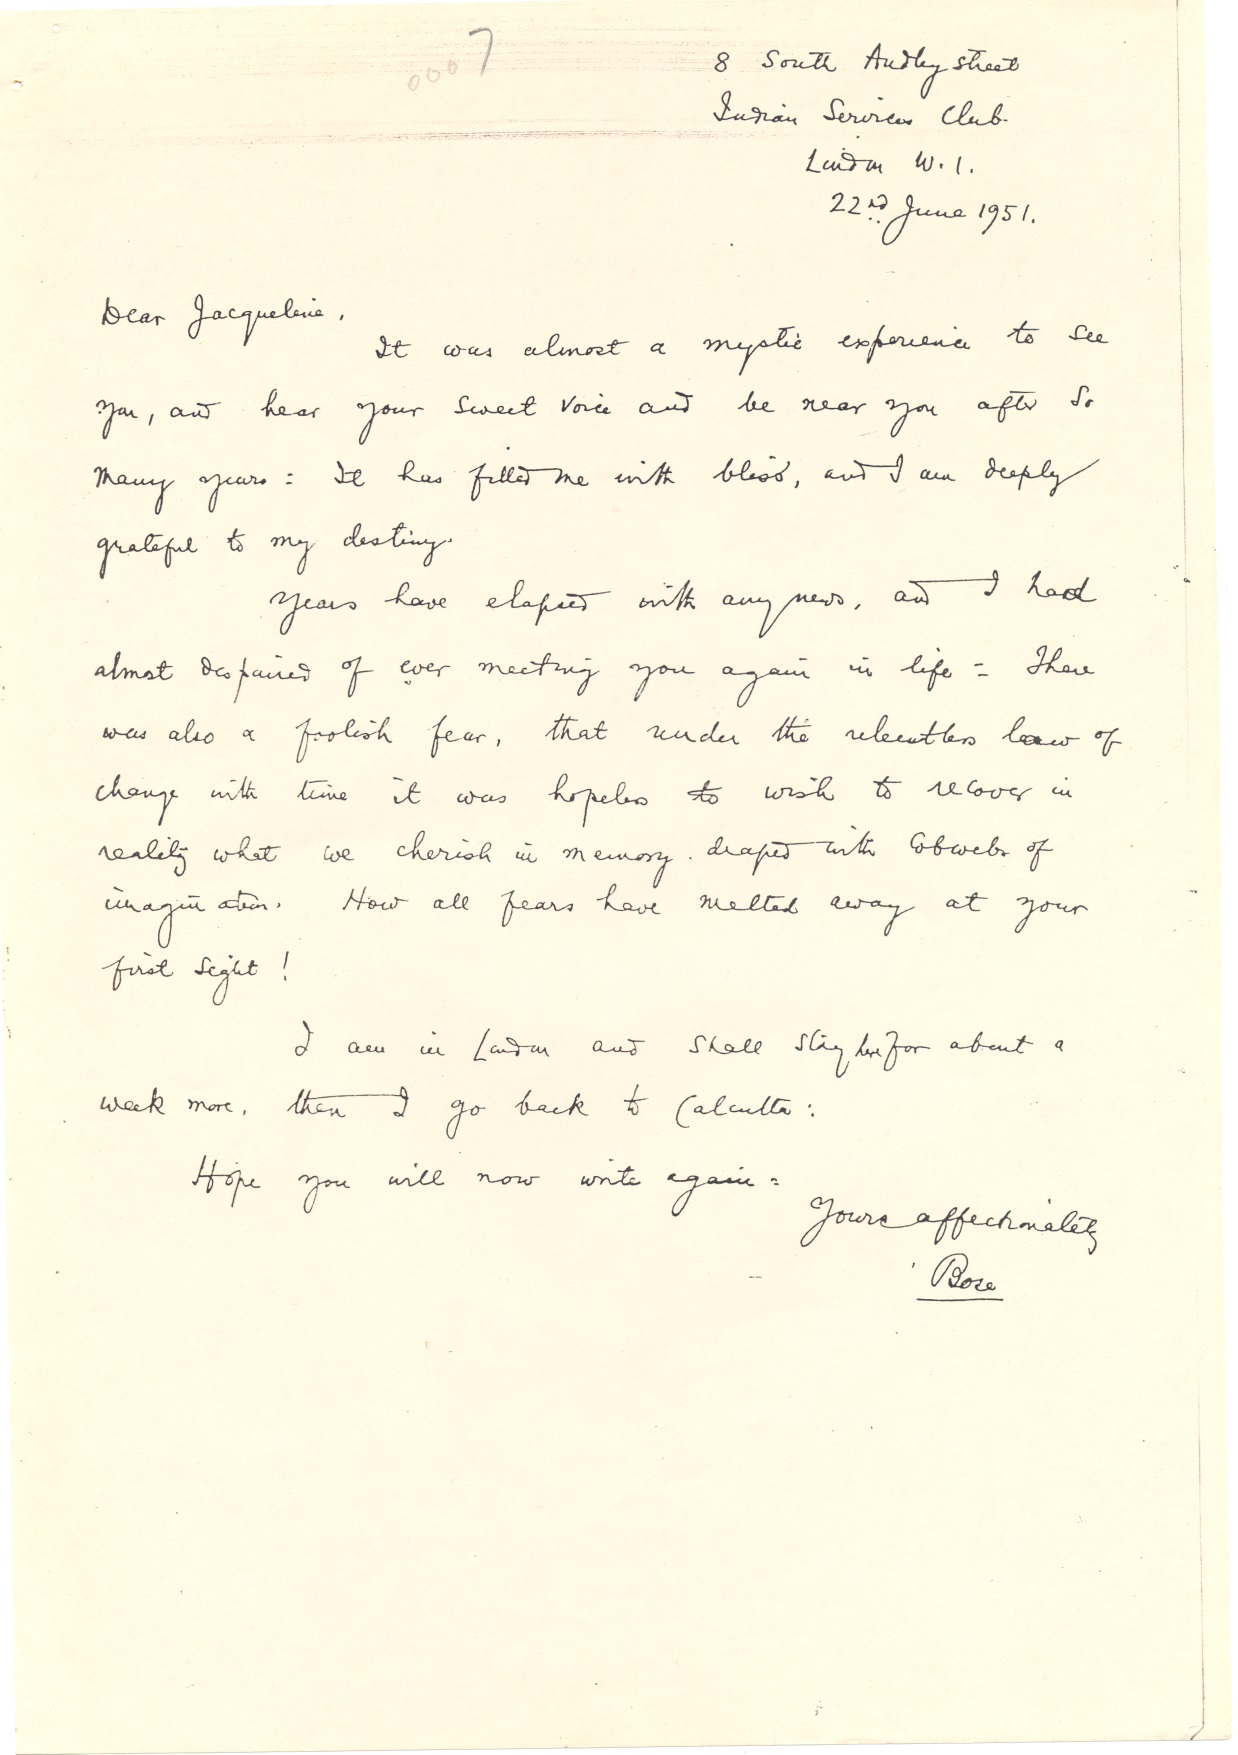 0007
8 South Audley Street
Indian Services Club.
London W.1.
22nd June 1951.
Dear Jacqueline,
It was almost a mystic experience to see
you, and hear your sweet voice and be near you after so
many years: It has filled me with bliss, and I am deeply
grateful to my destiny.
Years have elapsed with any news, and I had
almost despaired of ever meeting you again in life = There
was also a foolish fear, that under the relentless law of
change with time it was hopeless to wish to recover in
reality what we cherish in memory. draped with cobwebs of
imagination. How all fears have melted away at your
first sight!
I am in London and shall stay here for about a
week more, then I go back to Calcutta:
Hope you will now write again =
Yours affectionately
Bose